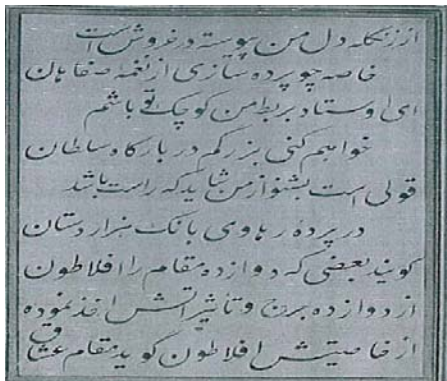 از زنگله دل من پیوسته در خروش است
خاصه چو پرده سازی از نغمهٔ صفاهان
ای اوستاد بربط من کوچک تو باشم
خواهم کنی بزرگم در بارگاه سلطان
قولی است بشنو از من شاید که راست باشد
در پردهٔ رهاوی بانک هزار دستان
کویند بعضی که دوازده مقام را افلاطون
از دوازده برج و تأثیراتش اخذ نموده
از خاصیتش افلاطون کوید مقام عشاق